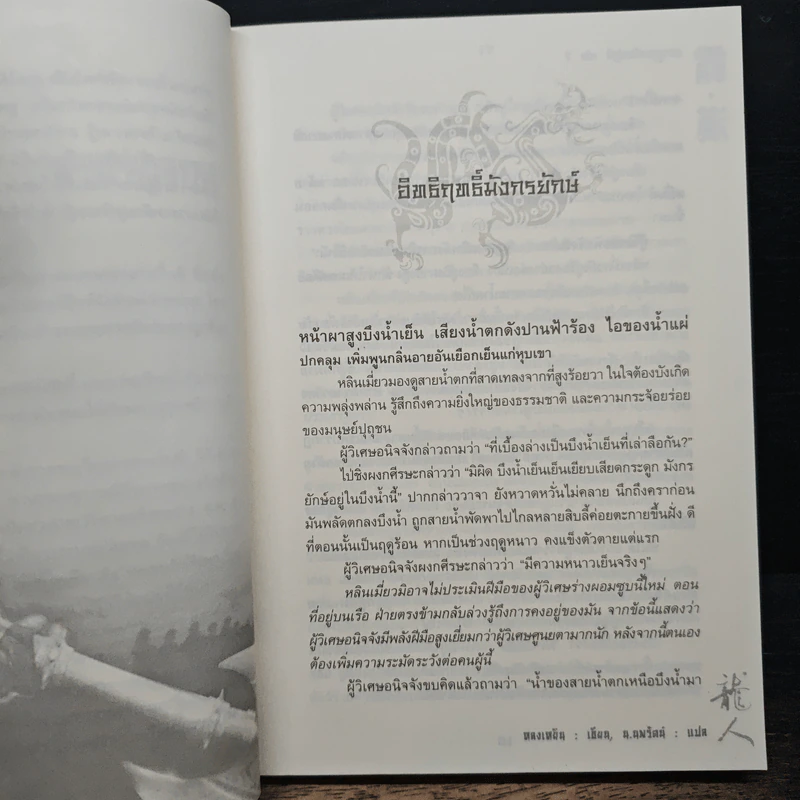 อิทธิฤทธิ์มังกรยักษ์
หน้าผาสูงบึงน้ำเย็น เสียงน้ำตกดังปานฟ้าร้อง ไอของน้ำแผ่
ปกคลุม เพิ่มพูนกลิ่นอายอันเยือกเย็นแก่หุบเขา
หลินเมี่ยวมองดูสายน้ำตกที่สาดเทลงจากที่สูงร้อยวา ในใจต้องบังเกิด
ความพลุ่งพล่าน รู้สึกถึงความยิ่งใหญ่ของธรรมชาติ และความกระจ้อยร่อย
ของมนุษย์ปุถุชน
ผู้วิเศษอนิจจังกล่าวถามว่า “ที่เบื้องล่างเป็นบึงน้ำเย็นที่เล่าลือกัน?”
ไปซิ่งผงกศีรษะกล่าวว่า “มิผิด บึงน้ำเย็นเย็นเยียบเสียดกระดูก มังกร
ยักษ์อยู่ในบึงน้ำนี้” ปากกล่าววาจา ยังหวาดหวั่นไม่คลาย นึกถึงคราก่อน
มันพลัดตกลงบึงน้ำ ถูกสายน้ำพัดพาไปไกลหลายสิบลี้ค่อยตะกายขึ้นฝั่ง ดี
ที่ตอนนั้นเป็นฤดูร้อน หากเป็นช่วงฤดูหนาว คงแข็งตัวตายแต่แรก
ผู้วิเศษอนิจจังผงกศีรษะกล่าวว่า “มีความหนาวเย็นจริงๆ”
หลินเมี่ยวมิอาจไม่ประเมินฝีมือของผู้วิเศษร่างผอมซูบนี้ใหม่ ตอน
ที่อยู่บนเรือ ฝ่ายตรงข้ามกลับล่วงรู้ถึงการคงอยู่ของมัน จากข้อนี้แสดงว่า
ผู้วิเศษอนิจจังมีพลังฝีมือสูงเยี่ยมกว่าผู้วิเศษศูนยตามากนัก หลังจากนี้ตนเอง
ต้องเพิ่มความระมัดระวังต่อคนผู้นี้
ผู้วิเศษอนิจจังขบคิดแล้วถามว่า “น้ำของสายน้ำตกเหนือบึงน้ำมา
龍
人
หลงเหยิน : เขียน, น.นพรัตน์ : แปล